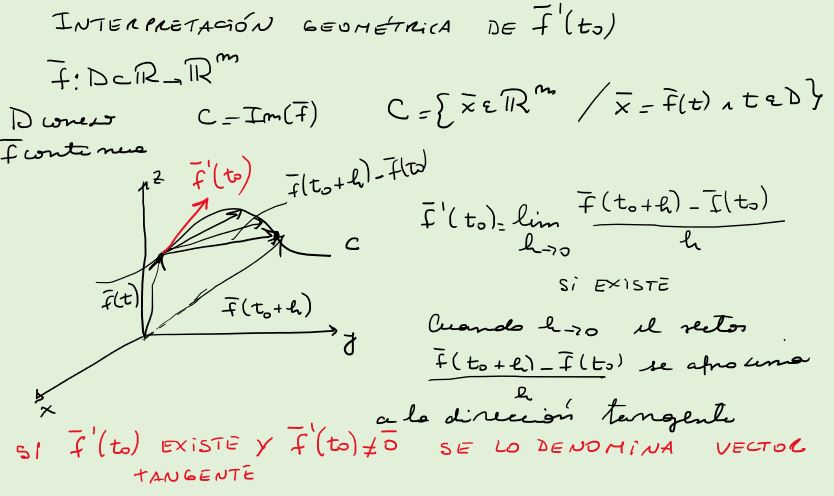 INTERPRETACIÓN GEOMÉTRICA DE f̄'(t₀)
f̄: D⊂ℝ→ℝᵐ
D conexo C = Im(f̄) C = { x̄ ∈ ℝᵐ / x̄ = f̄(t) ∧ t ∈ D }
f̄ continua
z
f̄'(t₀)
f̄(t₀+h) - f̄(t₀)
C
f̄(t)
f̄(t₀+h)
y
x
f̄'(t₀) = lim h→0 (f̄(t₀+h) - f̄(t₀)) / h
SI EXISTE
Cuando h→0 el vector
(f̄(t₀+h) - f̄(t₀)) / h se aproxima
a la dirección tangente
SI f̄'(t₀) EXISTE Y f̄'(t₀) ≠ 0̄ SE LO DENOMINA VECTOR
TANGENTE